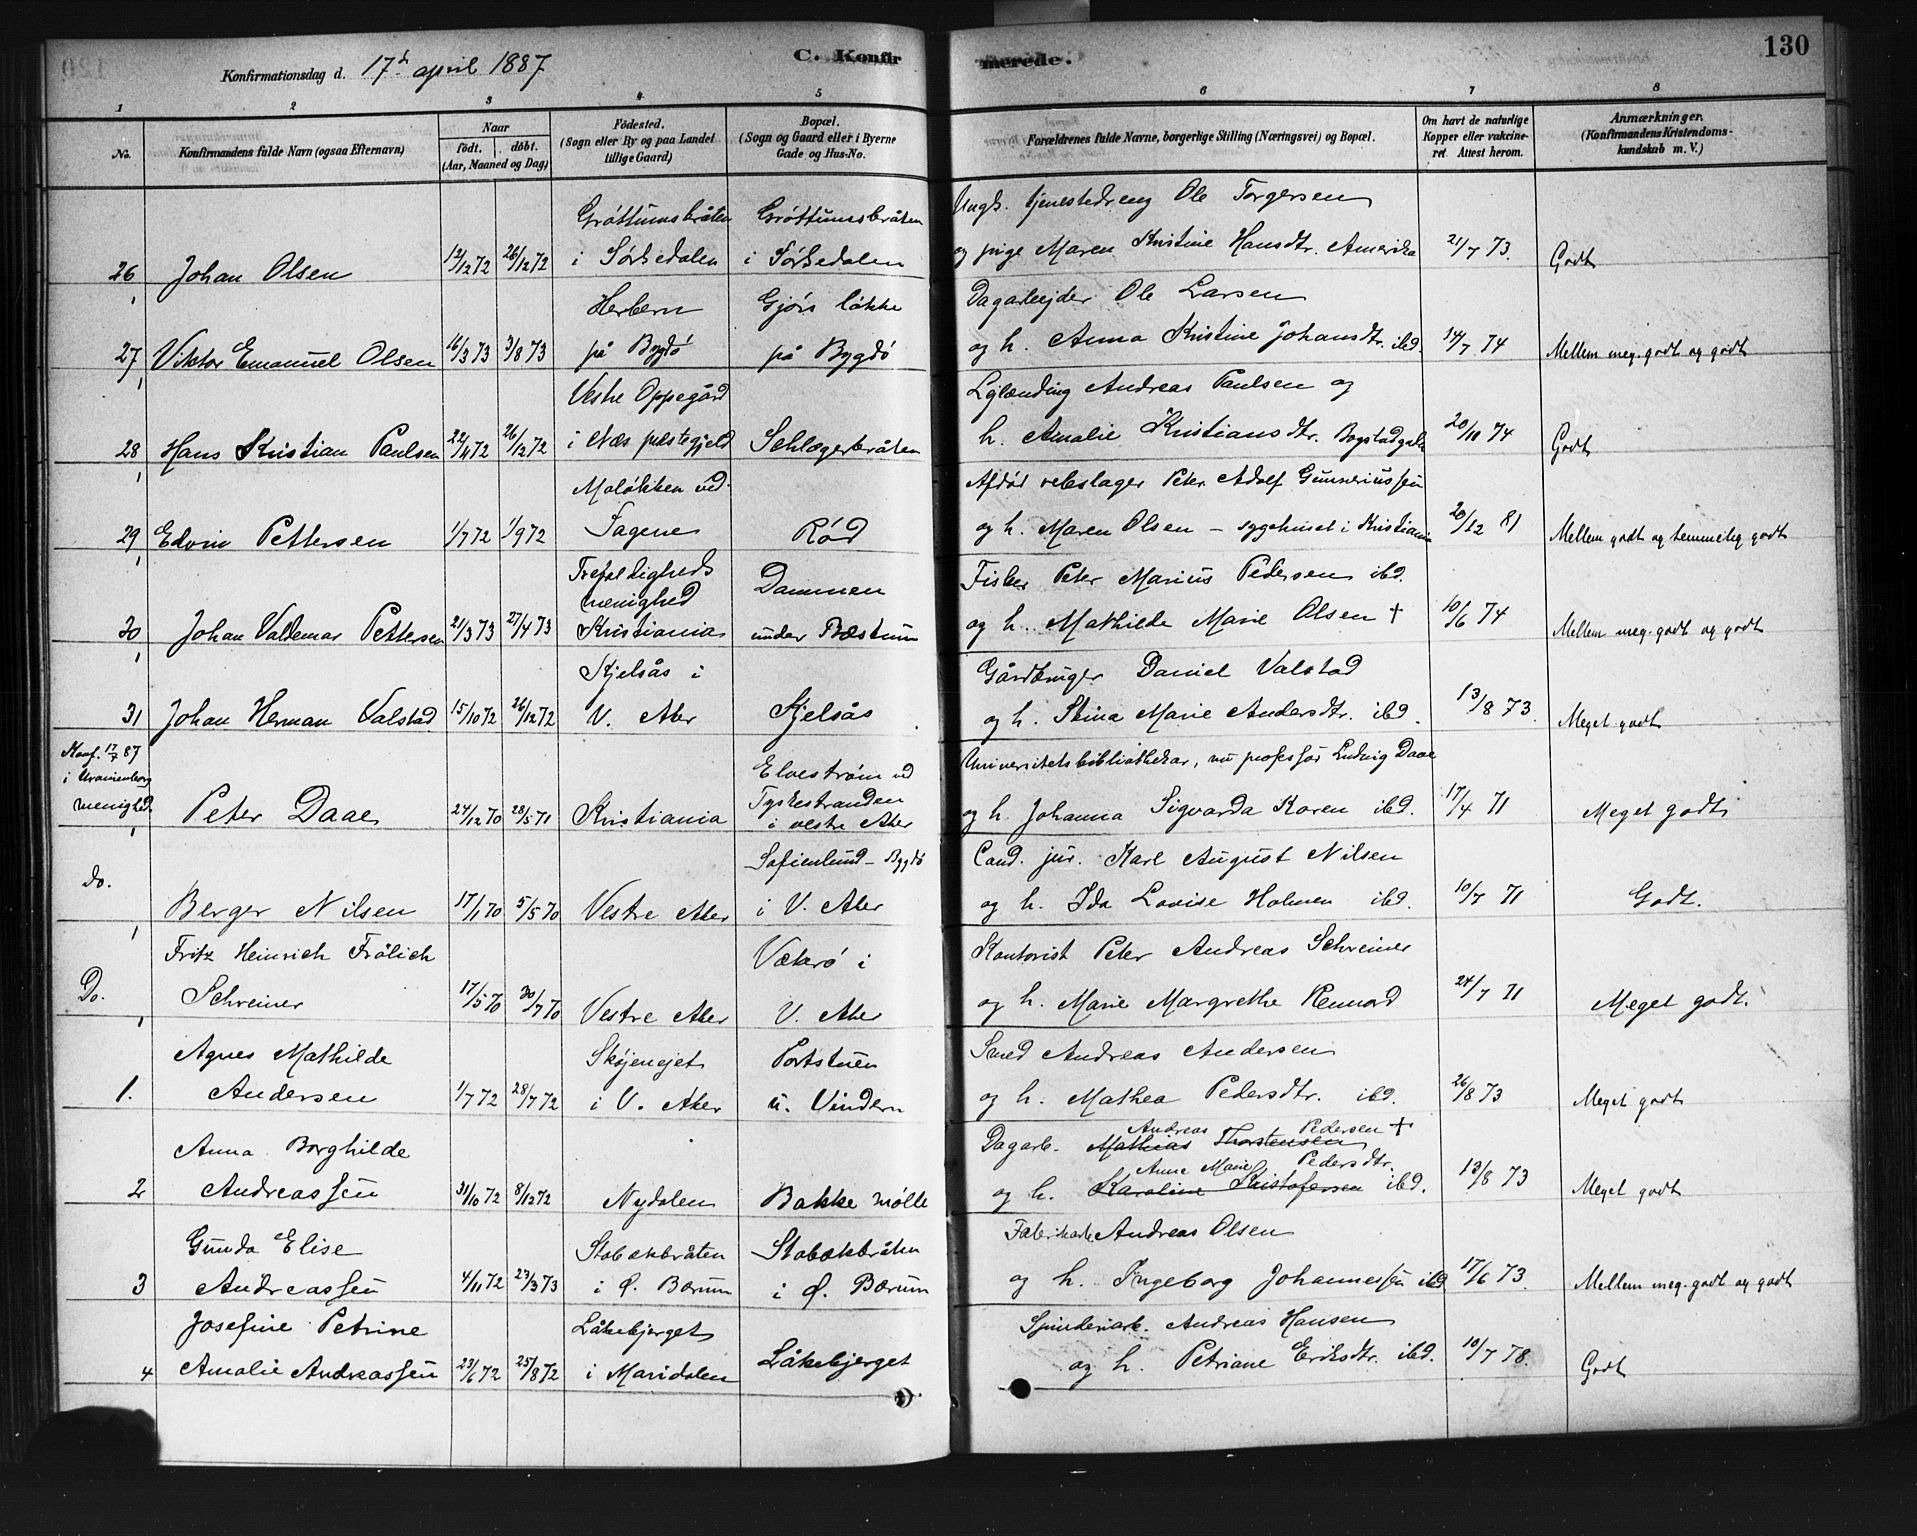 Konfirmationsdag d. 17de april 1887
C. Konfirmerede.
130
1 2 3 4 5 6 7 8
No.
Konfirmandens fulde Navn (ogsaa Efternavn)
Naar
født. døbt.
(Aar, Maaned og Dag)
Fødested.
(Sogn eller By og paa Landet
tillige Gaard)
Bopæl.
(Sogn og Gaard eller i Byerne
Gade og Hus-No.
Forældrenes fulde Navne, borgerlige Stilling (Næringsvei) og Bopæl.
Om havt de naturlige
Kopper eller vakcine-
ret Attest herom.
Anmærkninger.
(Konfirmandens Kristendoms-
kundskab m. V.)
Grøttumsbråten Grøttumsbråten Ungk. tjenestedreng Ole Torgersen
26 Johan Olsen 12/12 72 26/12 72 i Sørkedalen i Sørkedalen og pige Maren Kristine Hansdtr. Amerika 21/7 73. Godt
Herbern Gjørs løkke Dagarbejder Ole Larsen
27 Viktor Emanuel Olsen 16/3 73 3/8 73 på Bygdø på Bygdø og h. Anna Kristine Johansdtr. ibd. 14/7 74 Mellem meg. godt og godt
Vestre Oppegård Lglænding Andreas Paulsen og
28 Hans Kristian Paulsen 22/4 72 26/12 72 i Næs præstegjeld Schlægerbråten h. Amalie Kristiansdtr. 20/10 74 Godt
Moløkken ved Afdød rebslager Peter Adolf Gunneriussen
29 Edvin Pettersen 1/7 72 1/9 72 Sagene Rød og h. Maren Olsen – sygehuset i Kristiania 20/12 81 Mellem godt og temmelig godt
Trefoldigheds
menighed Dammen Fisker Peter Marius Pedersen ibd.
30 Johan Valdemar Pettersen 21/3 73 27/4 73 Kristiania under Bæstum og h. Mathilde Marie Olsen + 10/6 74 Mellem meg. godt og godt
Kjelsås i Gårdbruger Daniel Valstad
31 Johan Herman Valstad 15/10 72 26/12 72 V. Aker Kjelsås og h. Stina Marie Andersdtr. ibd. 13/8 73. Meget godt
Konf. 17/4 87
i Uranienborg
menighed Elvestrøm ved Universitetsbibliothekar, nu professor Ludvig Daae
Peter Daae 24/12 70 28/5 71 Kristiania Tyskestranden
i vestre Aker og h. Johanna Sigvarda Koren ibd. 17/4 71 Meget godt
Do. Sofienlund – Bygdø Cand. jur. Karl August Nilsen
Berger Nilsen 17/1 70 5/5 70 Vestre Aker i V. Aker og h. Ida Lovise Holmen ibd. 10/7 71 Godt.
Fritz Heinrich Frölich Vækerø i Kontorist Peter Andreas Schreiner
Do. Schreiner 17/5 70 30/7 70 Vestre Aker V. Aker og h. Marie Margrethe 24/7 71 Meget godt.
Agnes Mathilde Skøjenejet Portstuen Smed Andreas Andersen
1. Andersen 1/7 72 28/7 72 i V. Aker u. Vindern og h. Mathea Pedersdtr. ibd. 26/8 73 Meget godt
Andreas Pedersen +
Anna Borghilde Dagarb. Mathias Thorstensen
Anne Marie Pedersdtr.
2 Andreassen 31/10 72 8/12 72 Nydalen Bakke mølle og h. Karoline Kristofersen ibd. 13/8 73 Meget godt
Gunda Elise Stabækbråten Stabækbråten Fabrikarb. Andreas Olsen
3 Andreassen 4/11 72 23/3 73 i Ø. Bærum i Ø. Bærum og h. Ingeborg Johannessen ibd 17/6 73. Mellem meg. godt og godt
Josefine Petrine Låkebjerget Spinderiarb. Andreas Hansen
4 Amalie Andreassen 23/6 72 25/8 72 i Maridalen Låkebjerget og h. Petriane Eriksdtr. ibd. 10/7 78. Godt